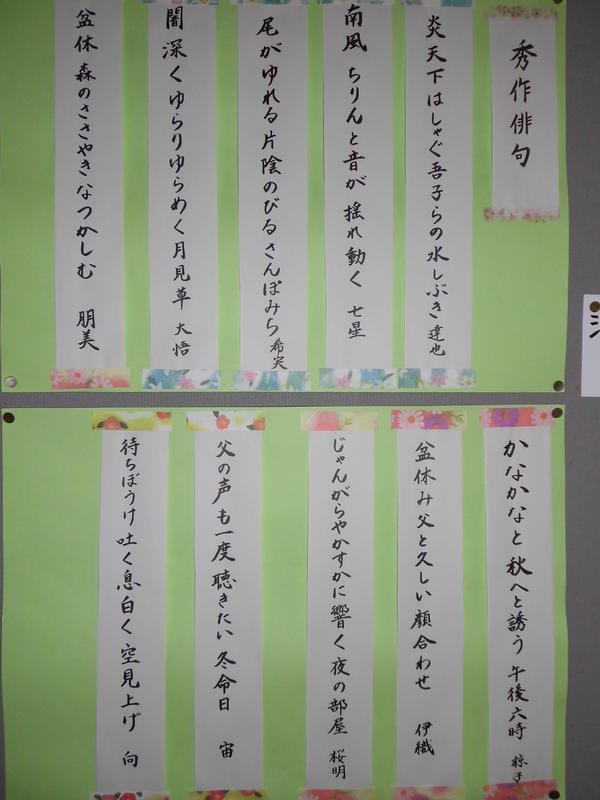 秀作俳句
炎天下はしゃぐ吾子らの水しぶき 達也
南風 ちりんと音が 揺れ動く 七星
尾がゆれる片陰のびるさんぽみち 希実
闇深くゆらりゆらめく月見草 大悟
盆休 森のささやきなつかしむ 朋美
かなかなと 秋へと誘う 午後六時 椋子
盆休み父と久しい顔合わせ 伊織
じゃんがらやかすかに響く夜の部屋 桜明
父の声も一度聴きたい 冬命日 宙
待ちぼうけ 吐く息白く 空見上げ 向